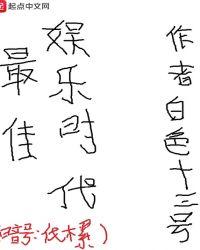 起点中文网
最佳
娱乐时代
作者白色十三号
暗号:伐木累)